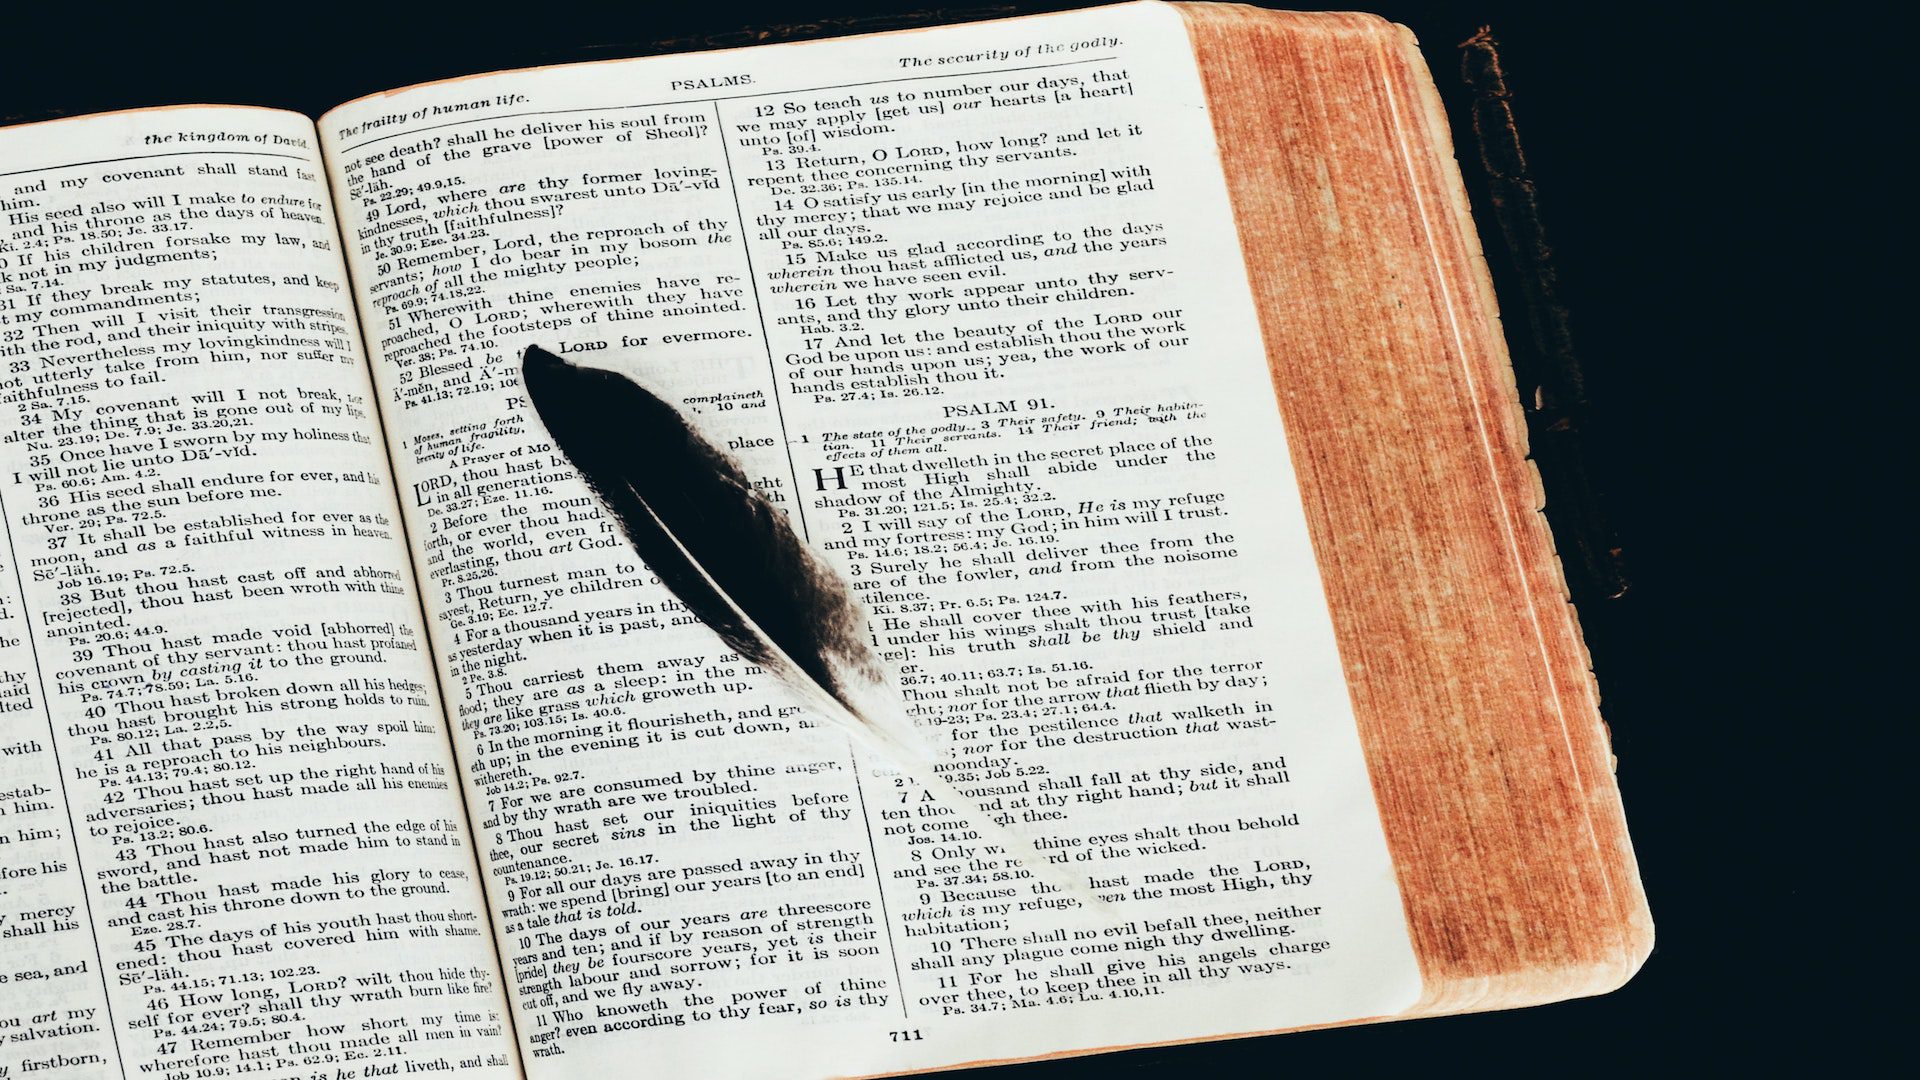 the kingdom of David.
and my covenant shall stand fast
him.
His seed also will I make to endure for
and his throne as the days of heaven.
Ki. 2.4; Ps. 18.50; Je. 33.17.
If his children forsake my law, and
k not in my judgments;
Sa. 7.14.
31 If they break my statutes, and keep
t my commandments;
32 Then will I visit their transgression
ith the rod, and their iniquity with stripes.
33 Nevertheless my lovingkindness will I
not utterly take from him, nor suffer my
faithfulness to fail.
2 Sa. 7.15.
34 My covenant will I not break, nor
alter the thing that is gone out of my lips.
Nu. 23.19; De. 7.9; Je. 33.20,21.
35 Once have I sworn by my holiness that
I will not lie unto Dā′-vĭd.
Ps. 60.6; Am. 4.2.
36 His seed shall endure for ever, and his
throne as the sun before me.
Ver. 29; Ps. 72.5.
37 It shall be established for ever as the
moon, and as a faithful witness in heaven.
Sē′-läh.
Job 16.19; Ps. 72.5.
38 But thou hast cast off and abhorred
[rejected], thou hast been wroth with thine
anointed.
Ps. 20.6; 44.9.
39 Thou hast made void [abhorred] the
covenant of thy servant: thou hast profaned
his crown by casting it to the ground.
Ps. 74.7; 78.59; La. 5.16.
40 Thou hast broken down all his hedges;
thou hast brought his strong holds to ruin.
Ps. 80.12; La. 2.2,5.
41 All that pass by the way spoil him:
he is a reproach to his neighbours.
Ps. 44.13; 79.4; 80.12.
42 Thou hast set up the right hand of his
adversaries; thou hast made all his enemies
to rejoice.
Ps. 13.2; 80.6.
43 Thou hast also turned the edge of his
sword, and hast not made him to stand in
the battle.
44 Thou hast made his glory to cease,
and cast his throne down to the ground.
Eze. 28.7.
45 The days of his youth hast thou short-
ened: thou hast covered him with shame.
Sē′-läh.
Ps. 44.15; 71.13; 102.23.
46 How long, LORD? wilt thou hide thy-
self for ever? shall thy wrath burn like fire?
Ps. 44.24; 79.5; 80.4.
47 Remember how short my time is:
wherefore hast thou made all men in vain?
Job 10.9; 14.1; Ps. 62.9; Ec. 2.11.
is he that liveth, and shall
The frailty of human life.
PSALMS.
The security of the godly.
not see death? shall he deliver his soul from
the hand of the grave [power of Sheol]?
Sē′-läh.
Ps. 22.29; 49.9,15.
49 Lord, where are thy former loving-
kindnesses, which thou swarest unto Dā′-vĭd
in thy truth [faithfulness]?
Je. 30.9; Eze. 34.23.
50 Remember, Lord, the reproach of thy
servants; how I do bear in my bosom the
reproach of all the mighty people;
Ps. 69.9; 74.18,22.
51 Wherewith thine enemies have re-
proached, O LORD; wherewith they have
reproached the footsteps of thine anointed.
Ver. 38; Ps. 74.10.
52 Blessed be LORD for evermore.
Ā′-mĕn, and Ā′-m
Ps. 41.13; 72.19; 106
PS
1 Moses, setting forth complaineth
of human fragility, 10 and
brevity of life.
A Prayer of Mo
LORD, thou hast b place
in all generations.
De. 33.27; Eze. 11.16.
2 Before the moun ught
forth, or ever thou had th
and the world, even fr
everlasting, thou art God.
Pr. 8.25,26.
3 Thou turnest man to
sayest, Return, ye children o
Ge. 3.19; Ec. 12.7.
4 For a thousand years in thy
as yesterday when it is past, and
in the night.
2 Pe. 3.8.
5 Thou carriest them away as
flood; they are as a sleep: in the m
they are like grass which groweth up.
Ps. 73.20; 103.15; Is. 40.6.
6 In the morning it flourisheth, and gro
eth up; in the evening it is cut down, a
withereth.
Job 14.2; Ps. 92.7.
7 For we are consumed by thine anger,
and by thy wrath are we troubled.
8 Thou hast set our iniquities before
thee, our secret sins in the light of thy
countenance.
Ps. 19.12; 50.21; Je. 16.17.
9 For all our days are passed away in thy
wrath: we spend [bring] our years [to an end]
as a tale that is told.
10 The days of our years are threescore
years and ten; and if by reason of strength
[pride] they be fourscore years, yet is their
strength labour and sorrow; for it is soon
cut off, and we fly away.
11 Who knoweth the power of thine
anger? even according to thy fear, so is thy
wrath.
12 So teach us to number our days, that
we may apply [get us] our hearts [a heart]
unto [of] wisdom.
Ps. 39.4.
13 Return, O LORD, how long? and let it
repent thee concerning thy servants.
De. 32.36; Ps. 135.14.
14 O satisfy us early [in the morning] with
thy mercy; that we may rejoice and be glad
all our days.
Ps. 85.6; 149.2.
15 Make us glad according to the days
wherein thou hast afflicted us, and the years
wherein we have seen evil.
16 Let thy work appear unto thy serv-
ants, and thy glory unto their children.
Hab. 3.2.
17 And let the beauty of the LORD our
God be upon us: and establish thou the work
of our hands upon us; yea, the work of our
hands establish thou it.
Ps. 27.4; Is. 26.12.
PSALM 91.
1 The state of the godly. 3 Their safety. 9 Their habita-
tion. 11 Their servants. 14 Their friend; with the
effects of them all.
HE that dwelleth in the secret place of the
most High shall abide under the
shadow of the Almighty.
Ps. 31.20; 121.5; Is. 25.4; 32.2.
2 I will say of the LORD, He is my refuge
and my fortress: my God; in him will I trust.
Ps. 14.6; 18.2; 56.4; Je. 16.19.
3 Surely he shall deliver thee from the
are of the fowler, and from the noisome
stilence.
Ki. 8.37; Pr. 6.5; Ps. 124.7.
He shall cover thee with his feathers,
under his wings shalt thou trust [take
ge]: his truth shall be thy shield and
er.
36.7; 40.11; 63.7; Is. 51.16.
Thou shalt not be afraid for the terror
ght; nor for the arrow that flieth by day;
19-23; Ps. 23.4; 27.1; 64.4.
for the pestilence that walketh in
; nor for the destruction that wast-
noonday.
9.35; Job 5.22.
7 A ousand shall fall at thy side, and
ten thou nd at thy right hand; but it shall
not come gh thee.
Jos. 14.10.
8 Only wi thine eyes shalt thou behold
and see the re rd of the wicked.
Ps. 37.34; 58.10.
9 Because tho hast made the LORD,
which is my refuge, ven the most High, thy
habitation;
10 There shall no evil befall thee, neither
shall any plague come nigh thy dwelling.
11 For he shall give his angels charge
over thee, to keep thee in all thy ways.
Ps. 34.7; Ma. 4.6; Lu. 4.10,11.
711